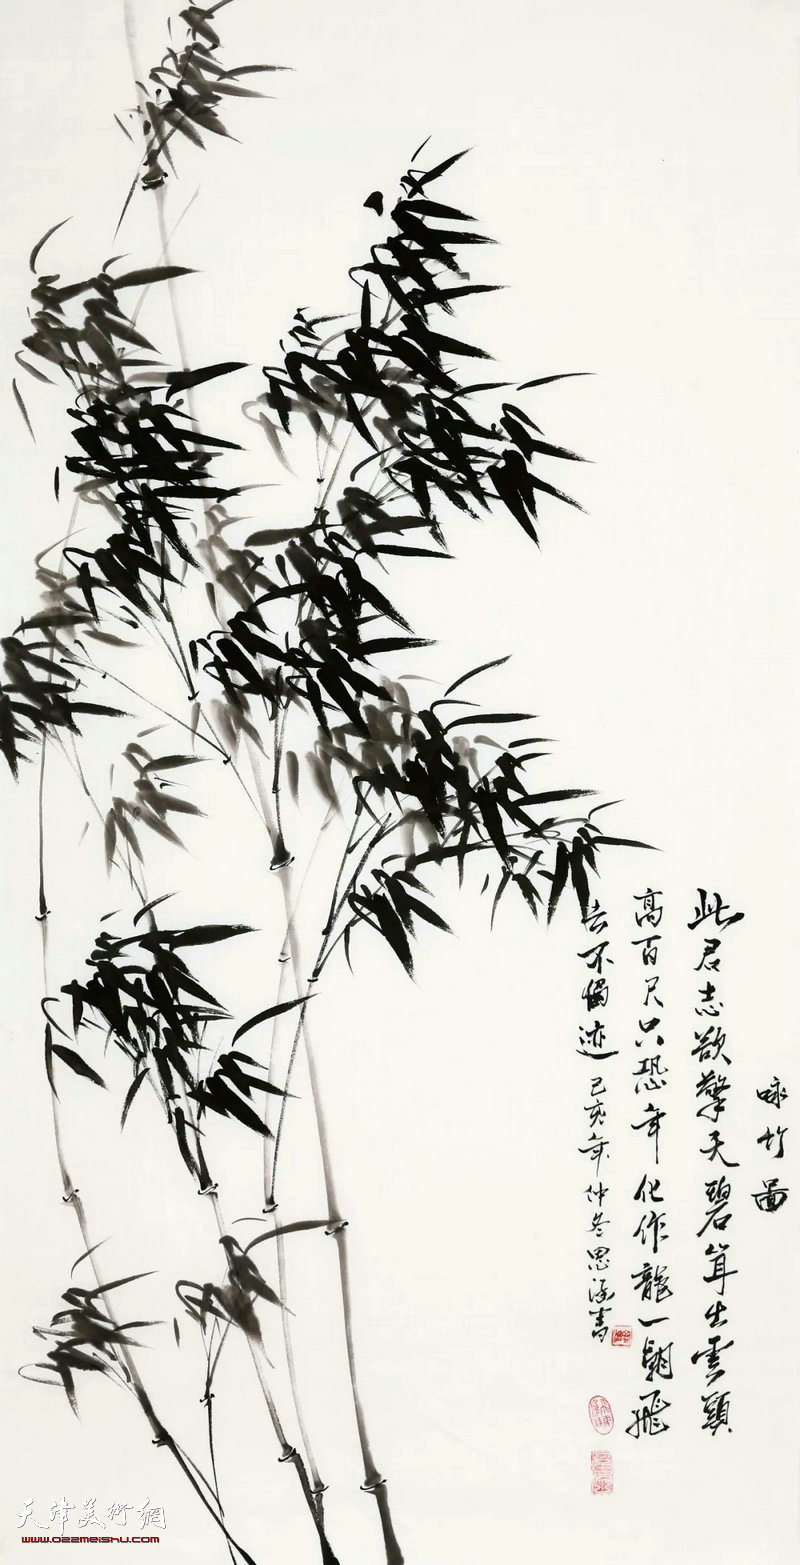 咏竹圖
此君志欲擎天碧耸出雲頭
高百尺只恐年化作龍一朝飛
去不留迹 己亥年仲冬思涵書
天津美術網
www.022meishu.com